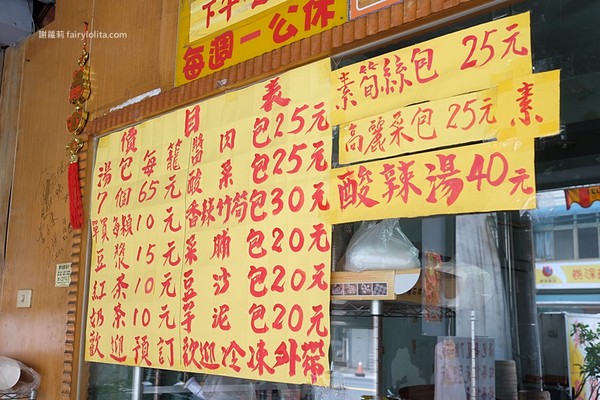 謝蘿莉 fairylolita.com
下午
每週一公休
價目表
湯包每籠
7個65元
單買每顆10元
豆漿15元
紅茶10元
奶茶10元
歡迎預訂
醬肉包25元
酸菜包25元
香辣竹筍包30元
菜脯包20元
豆沙包20元
芋泥包20元
歡迎冷凍外帶
素筍絲包25元
高麗菜包25元素
酸辣湯40元